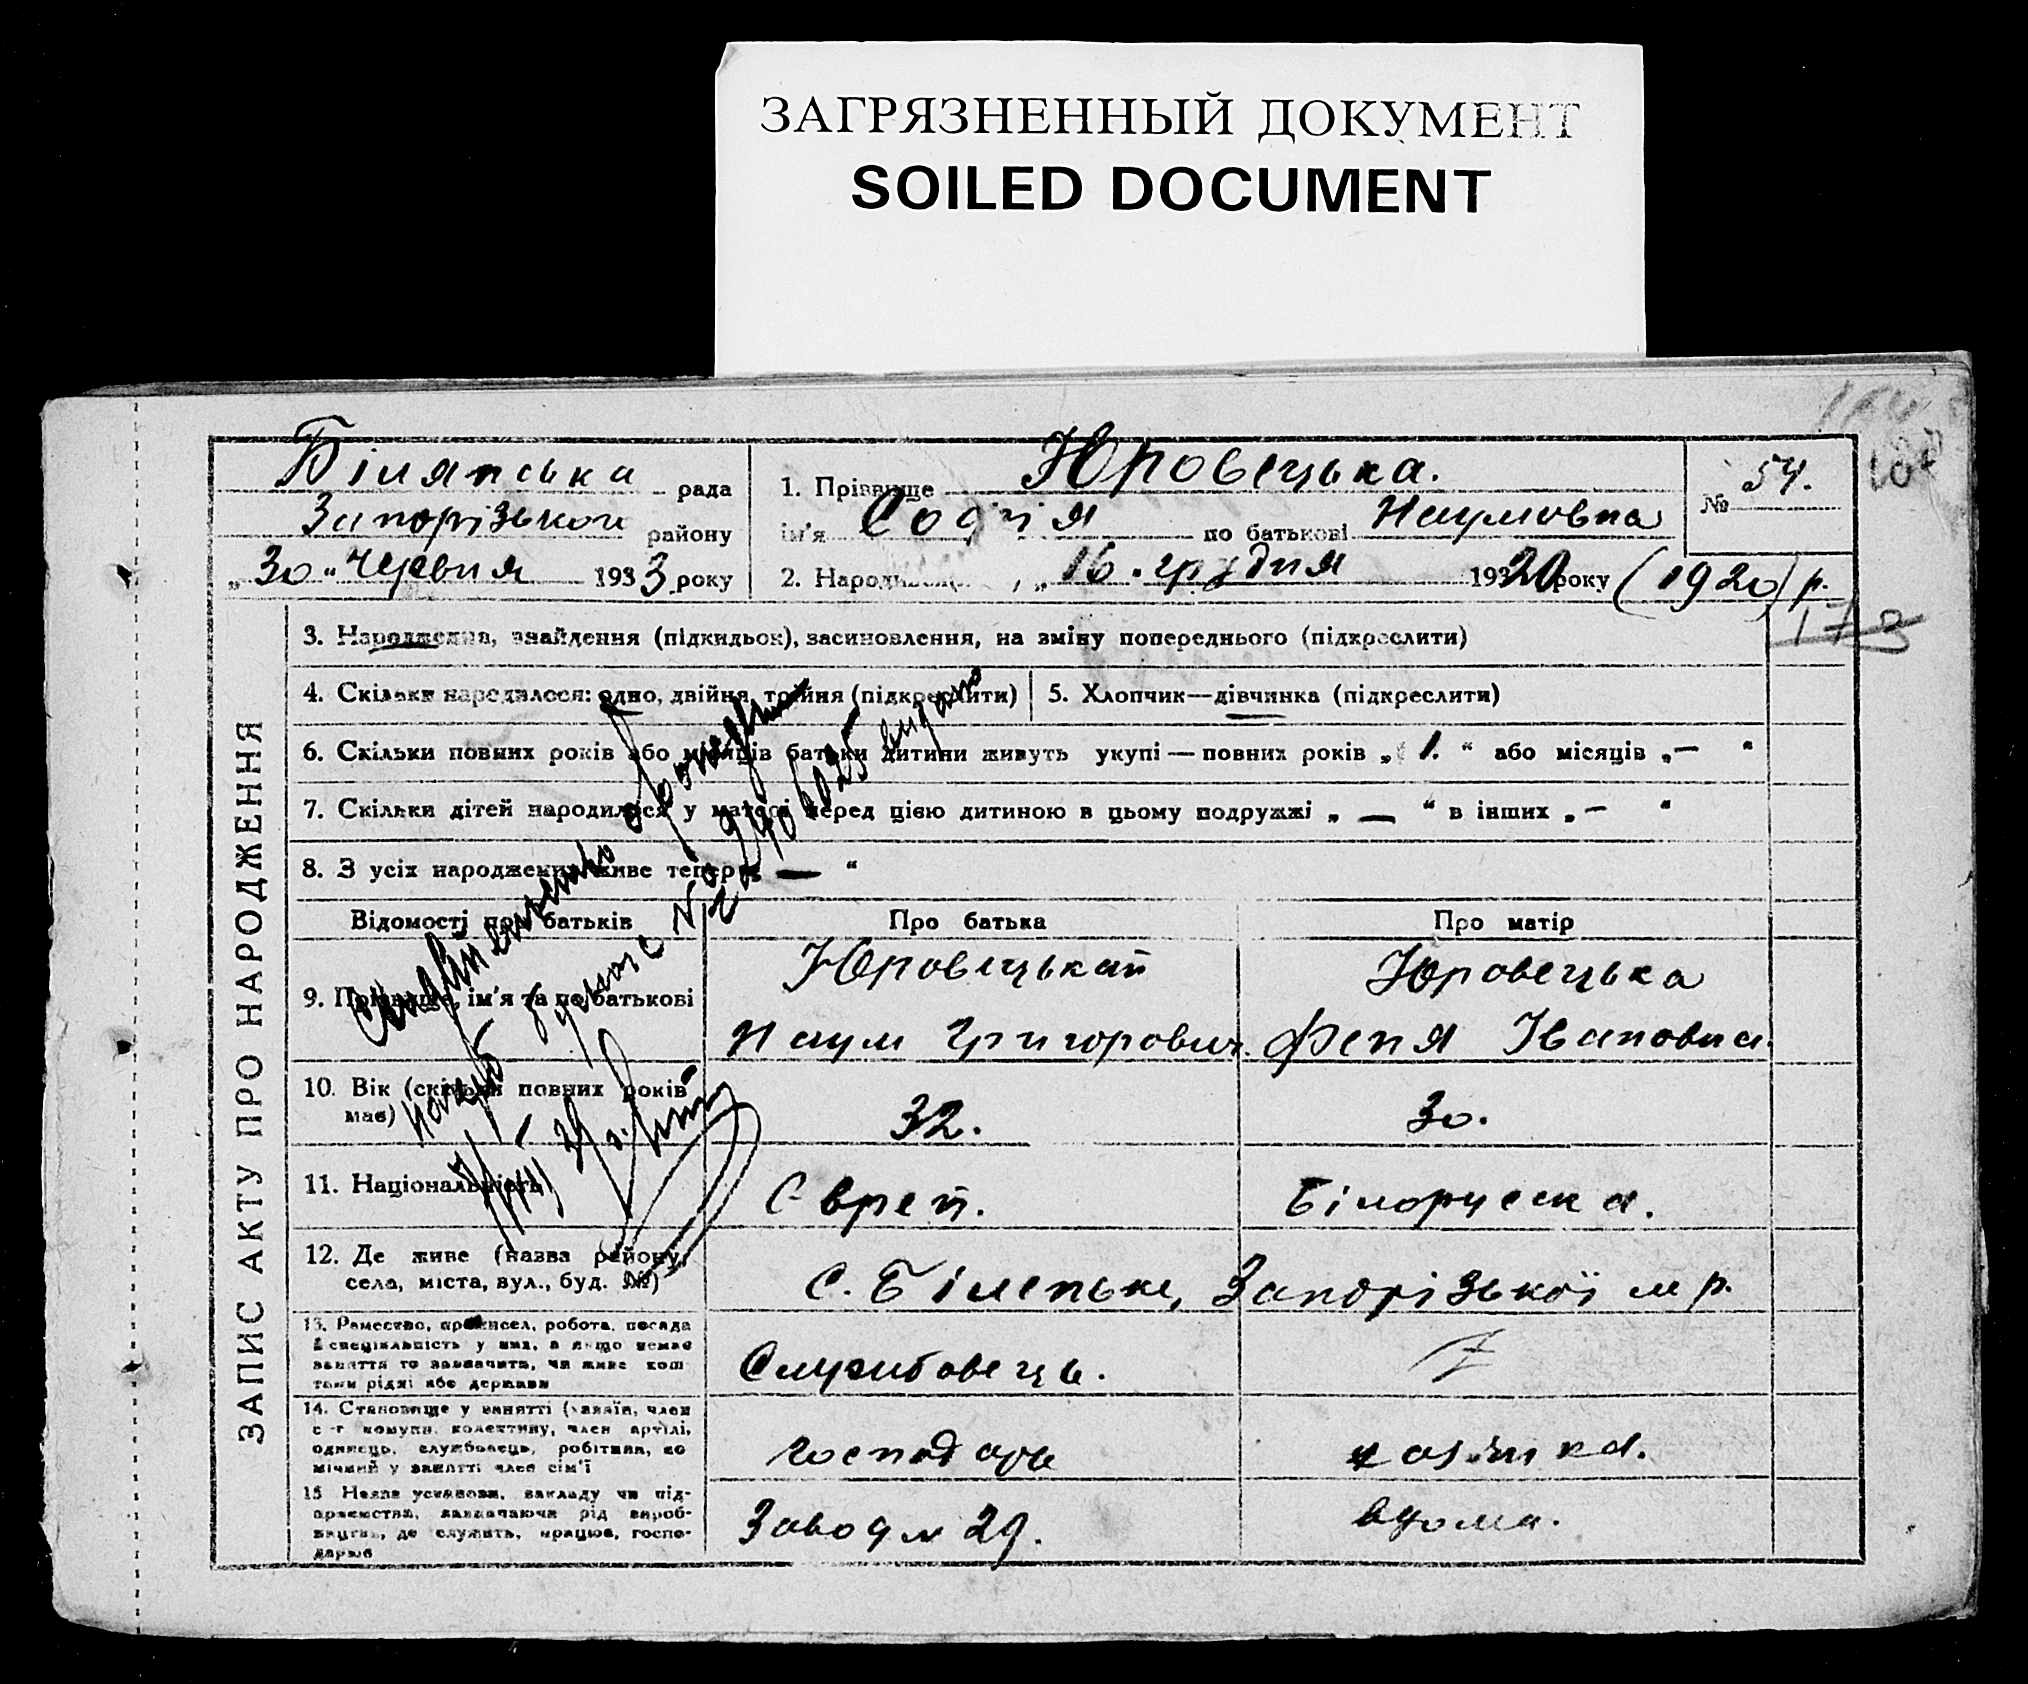 ЗАГРЯЗНЕННЫЙ ДОКУМЕНТ
SOILED DOCUMENT
Білянська рада
Запорізькой району
„30" червня 1933 року
1. Прізвище Юровецька.
ім'я Софія по батькові Наумовна
2. Народи „16. грудня 19320 року (1920) р.
№ 54.
173
ЗАПИС АКТУ ПРО НАРОДЖЕННЯ
3. Народжена, знайдення (підкидьок), засиновлення, на зміну попереднього (підкреслити)
4. Скільки народилося: одно, двійня, тройня (підкреслити)
5. Хлопчик—дівчинка (підкреслити)
6. Скільки повних років або місяців батьки дитини живуть укупі — повних років „1." або місяців „—"
7. Скільки дітей народилося у матері перед цією дитиною в цьому подружжі „—" в інших „—"
8. З усіх народжених живе тепер „—"
Відомості про батьків Про батька Про матір
9. Прізвище, ім'я та по батькові
Юровецький Юровецька
Наум Григорович. Феня Івановна.
10. Вік (скільки повних років має) 32. 30.
11. Національність Єврей. Білоруска.
12. Де живе (назва району, села, міста, вул., буд. №)
С. Біленьке, Запорізької м р.
13. Рамество, промисел, робота, посада й спеціяльність у них, а якщо немає заняття то зазначити, чи живе коштами рідні або держави
Службовець.
14. Становище у занятті (хазяїн, член с-г комуни, колективу, член артілі, одинець, службовець, робітник, помічний у занятті член сім'ї
господарь
15 Назва установи, закладу чи підприємства, зазначаючи рід виробництва, де служить, працює, господарює
Завод № 29. вдома.